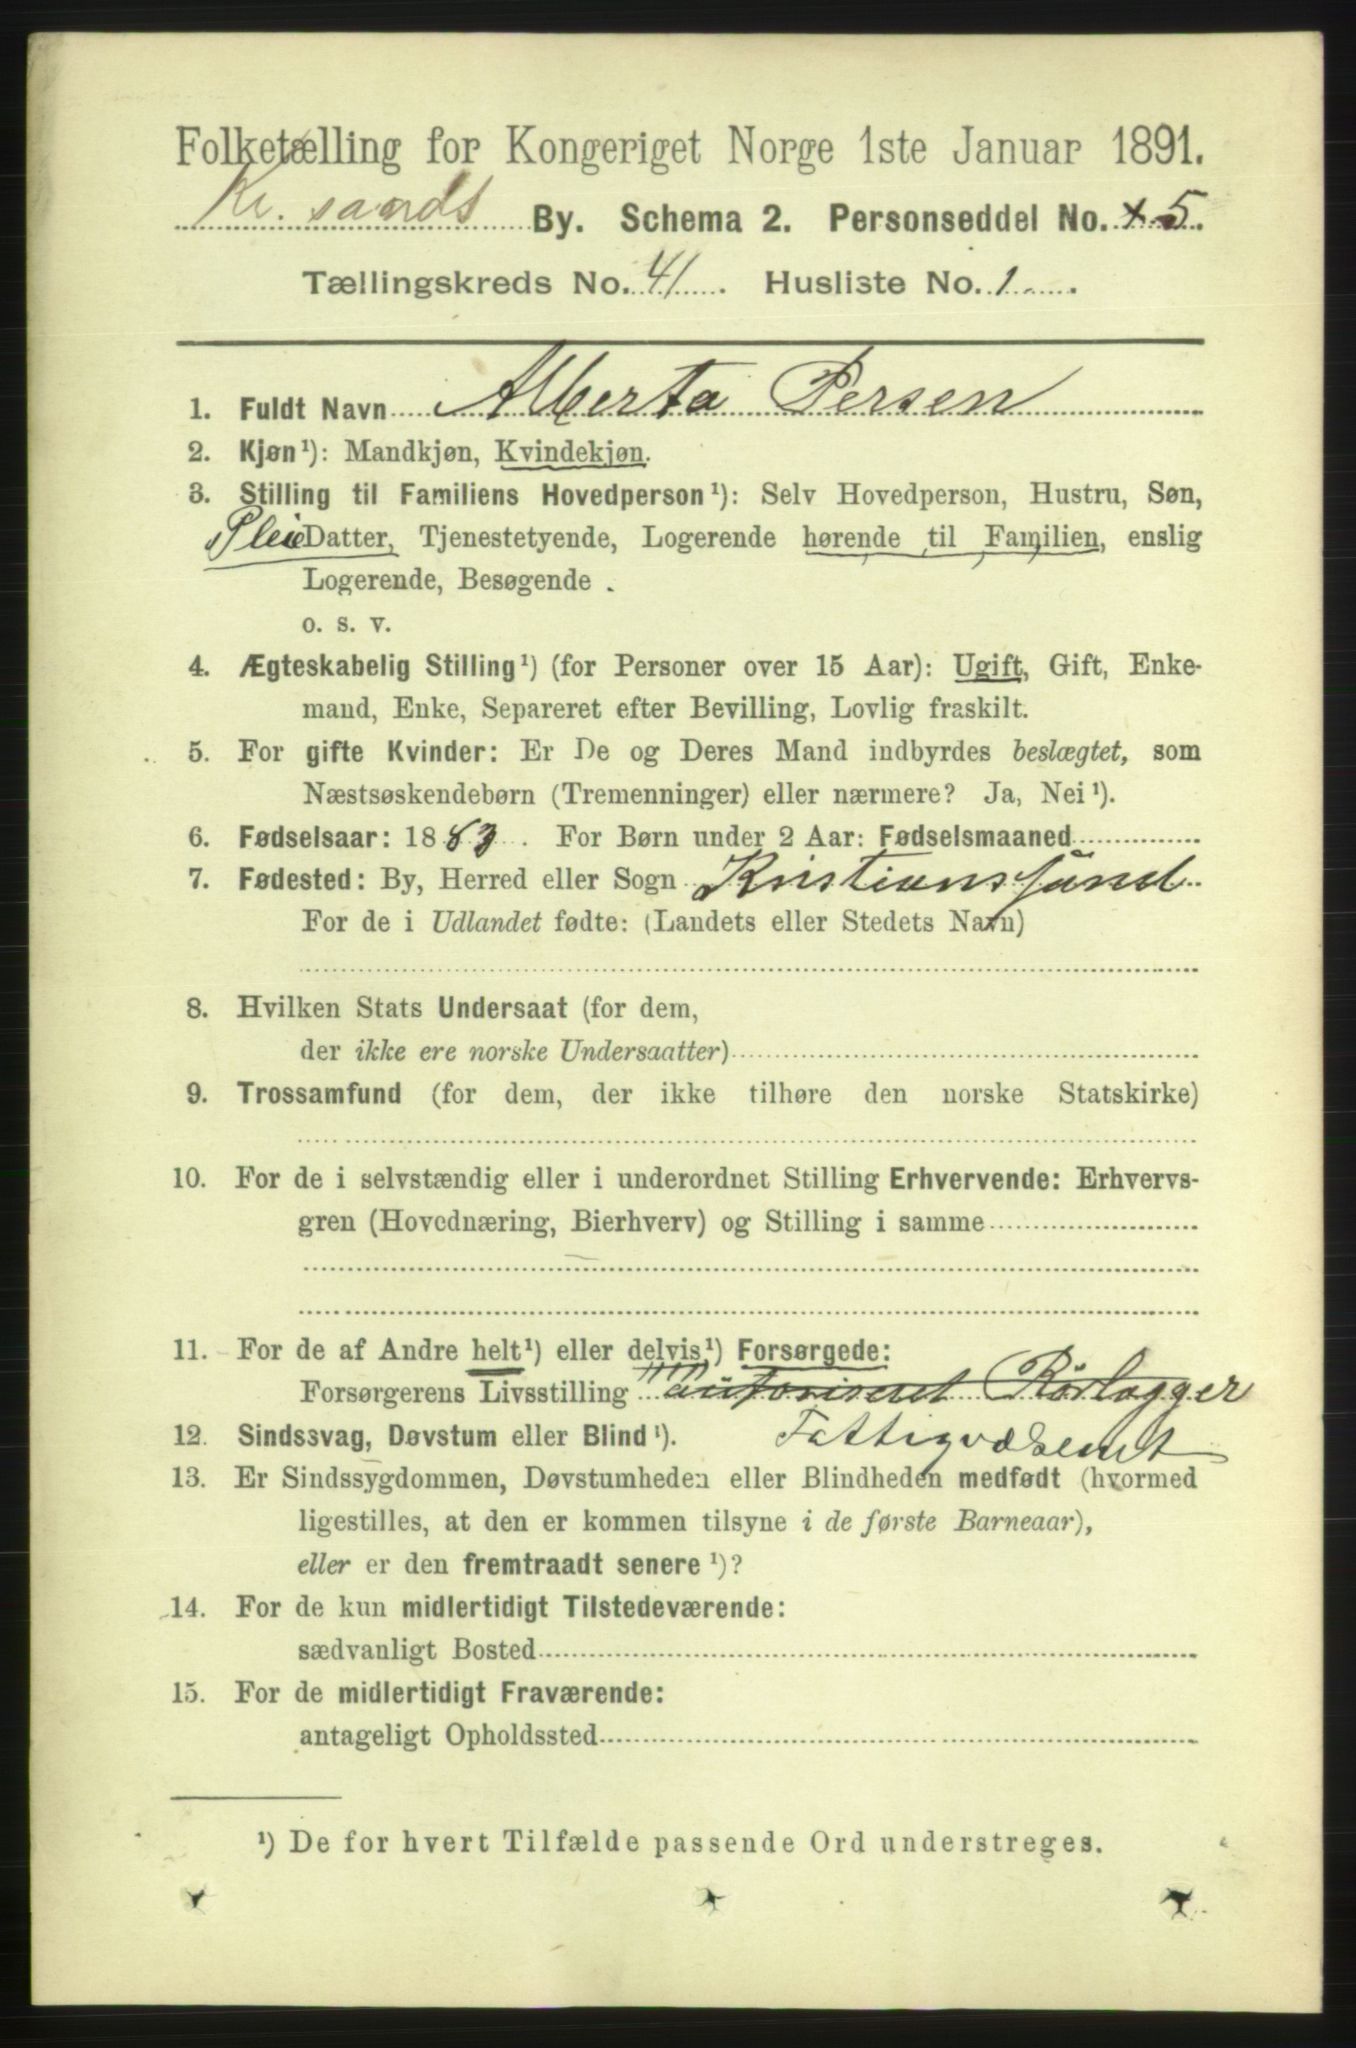 Folketælling for Kongeriget Norge 1ste Januar 1891.
Kr. sands By. Schema 2. Personseddel No. 5.
Tællingskreds No. 41. Husliste No. 1.
1. Fuldt Navn Alberta Persen
2. Kjøn¹): Mandkjøn, Kvindekjøn.
3. Stilling til Familiens Hovedperson¹): Selv Hovedperson, Hustru, Søn,
Pleie Datter, Tjenestetyende, Logerende hørende til Familien, enslig
Logerende, Besøgende.
o. s. v.
4. Ægteskabelig Stilling¹) (for Personer over 15 Aar): Ugift, Gift, Enke-
mand, Enke, Separeret efter Bevilling, Lovlig fraskilt.
5. For gifte Kvinder: Er De og Deres Mand indbyrdes beslægtet, som
Næstsøskendebørn (Tremenninger) eller nærmere? Ja, Nei¹).
6. Fødselsaar: 1883. For Børn under 2 Aar: Fødselsmaaned
7. Fødested: By, Herred eller Sogn Kristianssand
For de i Udlandet fødte: (Landets eller Stedets Navn)
8. Hvilken Stats Undersaat (for dem,
der ikke ere norske Undersaatter)
9. Trossamfund (for dem, der ikke tilhøre den norske Statskirke)
10. For de i selvstændig eller i underordnet Stilling Erhvervende: Erhvervs-
gren (Hovednæring, Bierhverv) og Stilling i samme
11. For de af Andre helt¹) eller delvis¹) Forsørgede:
Forsørgerens Livsstilling autoriseret Rörlægger
12. Sindssvag, Døvstum eller Blind¹). Fattigvæsenet
13. Er Sindssygdommen, Døvstumheden eller Blindheden medfødt (hvormed
ligestilles, at den er kommen tilsyne i de første Barneaar),
eller er den fremtraadt senere¹)?
14. For de kun midlertidigt Tilstedeværende:
sædvanligt Bosted
15. For de midlertidigt Fraværende:
antageligt Opholdssted
¹) De for hvert Tilfælde passende Ord understreges.